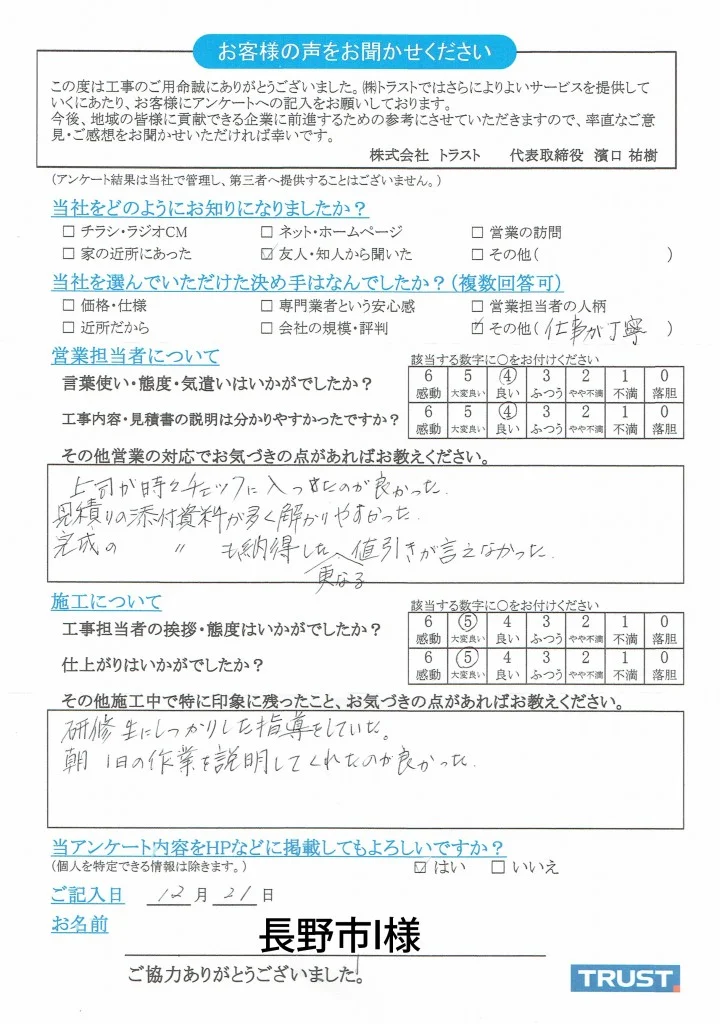 お客様の声をお聞かせください
この度は工事のご用命誠にありがとうございました。㈱トラストではさらによりよいサービスを提供して
いくにあたり、お客様にアンケートへの記入をお願いしております。
今後、地域の皆様に貢献できる企業に前進するための参考にさせていただきますので、率直なご意
見・ご感想をお聞かせいただければ幸いです。
株式会社 トラスト 代表取締役 濱口 祐樹
(アンケート結果は当社で管理し、第三者へ提供することはございません。)
当社をどのようにお知りになりましたか?
□ チラシ・ラジオCM □ ネット・ホームページ □ 営業の訪問
□ 家の近所にあった ☑ 友人・知人から聞いた □ その他( )
当社を選んでいただけた決め手はなんでしたか?(複数回答可)
□ 価格・仕様 □ 専門業者という安心感 □ 営業担当者の人柄
□ 近所だから □ 会社の規模・評判 ☑ その他( 仕事が丁寧 )
営業担当者について 該当する数字に○をお付けください
言葉使い・態度・気遣いはいかがでしたか? 6 5 ④ 3 2 1 0
感動 大変良い 良い ふつう やや不満 不満 落胆
工事内容・見積書の説明は分かりやすかったですか? 6 5 ④ 3 2 1 0
感動 大変良い 良い ふつう やや不満 不満 落胆
その他営業の対応でお気づきの点があればお教えください。
上司が時々チェックに入ったのが良かった.
見積りの添付資料が多く解かりやすかった.
完成の 〃 も納得した 値引きが言えなかった.
更なる
施工について 該当する数字に○をお付けください
工事担当者の挨拶・態度はいかがでしたか? 6 ⑤ 4 3 2 1 0
感動 大変良い 良い ふつう やや不満 不満 落胆
仕上がりはいかがでしたか? 6 ⑤ 4 3 2 1 0
感動 大変良い 良い ふつう やや不満 不満 落胆
その他施工中で特に印象に残ったこと、お気づきの点があればお教えください。
研修生にしっかりした指導をしていた。
朝 1日の作業を説明してくれたのが良かった.
当アンケート内容をHPなどに掲載してもよろしいですか?
(個人を特定できる情報は除きます。) ☑ はい □ いいえ
ご記入日 12 月 21 日
お名前 長野市I様
ご協力ありがとうございました。
TRUST.